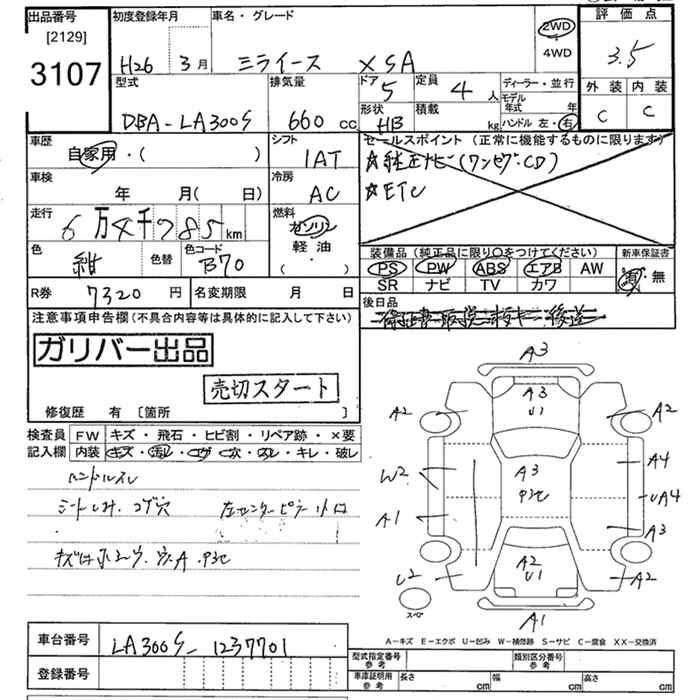 出品番号 初度登録年月 車名・グレード 2WD 4WD 評価点
[2129]
3107 H26 3月 ミライース XSA 3.5
型式 排気量 ドア 5 定員 4人 ディーラー・並行 外装 内装
DBA-LA300S 660cc 形状 HB 積載 kg モデル年式 年 ハンドル 左・右 C C
車歴 自家用・( ) シフト IAT セールスポイント(正常に機能するものに限ります)
★純正ナビ(ワンセグ.CD)
★ETC
車検 年 月( 日) 冷房 AC
走行 6万4千785km 燃料 ガソリン 軽油 ( ・ )
色 紺 色替 色コード B70
装備品(純正品に限り○をつけてください) 新車保証書
PS PW ABS エアB AW 有・無
SR ナビ TV カワ
R券 7320円 名変期限 月 日 後日品
注意事項申告欄(不具合内容等は具体的に記入して下さい)
ガリバー出品
売切スタート
修復歴 有 [箇所 ]
検査員 FW キズ・飛石・ヒビ割・リペア跡・×要
記入欄 内装 キズ・汚レ・コゲ・穴・スレ・キレ・破レ
ハンドルスレ
シートしみ.コゲ穴 左センターピラー
A3
A3
U1
A2 A2
W2 A3 A4
UA4
A1 A3
A2
U1
U2 A2
A1
スペア
A-キズ E-エクボ U-凹み W-補修跡 S-サビ C-腐食 XX-交換済
車台番号 LA300S-1237701
登録番号
型式指定番号 参考 類別区分番号 参考
車庫証明用 参考 長さ cm 幅 cm 高さ cm